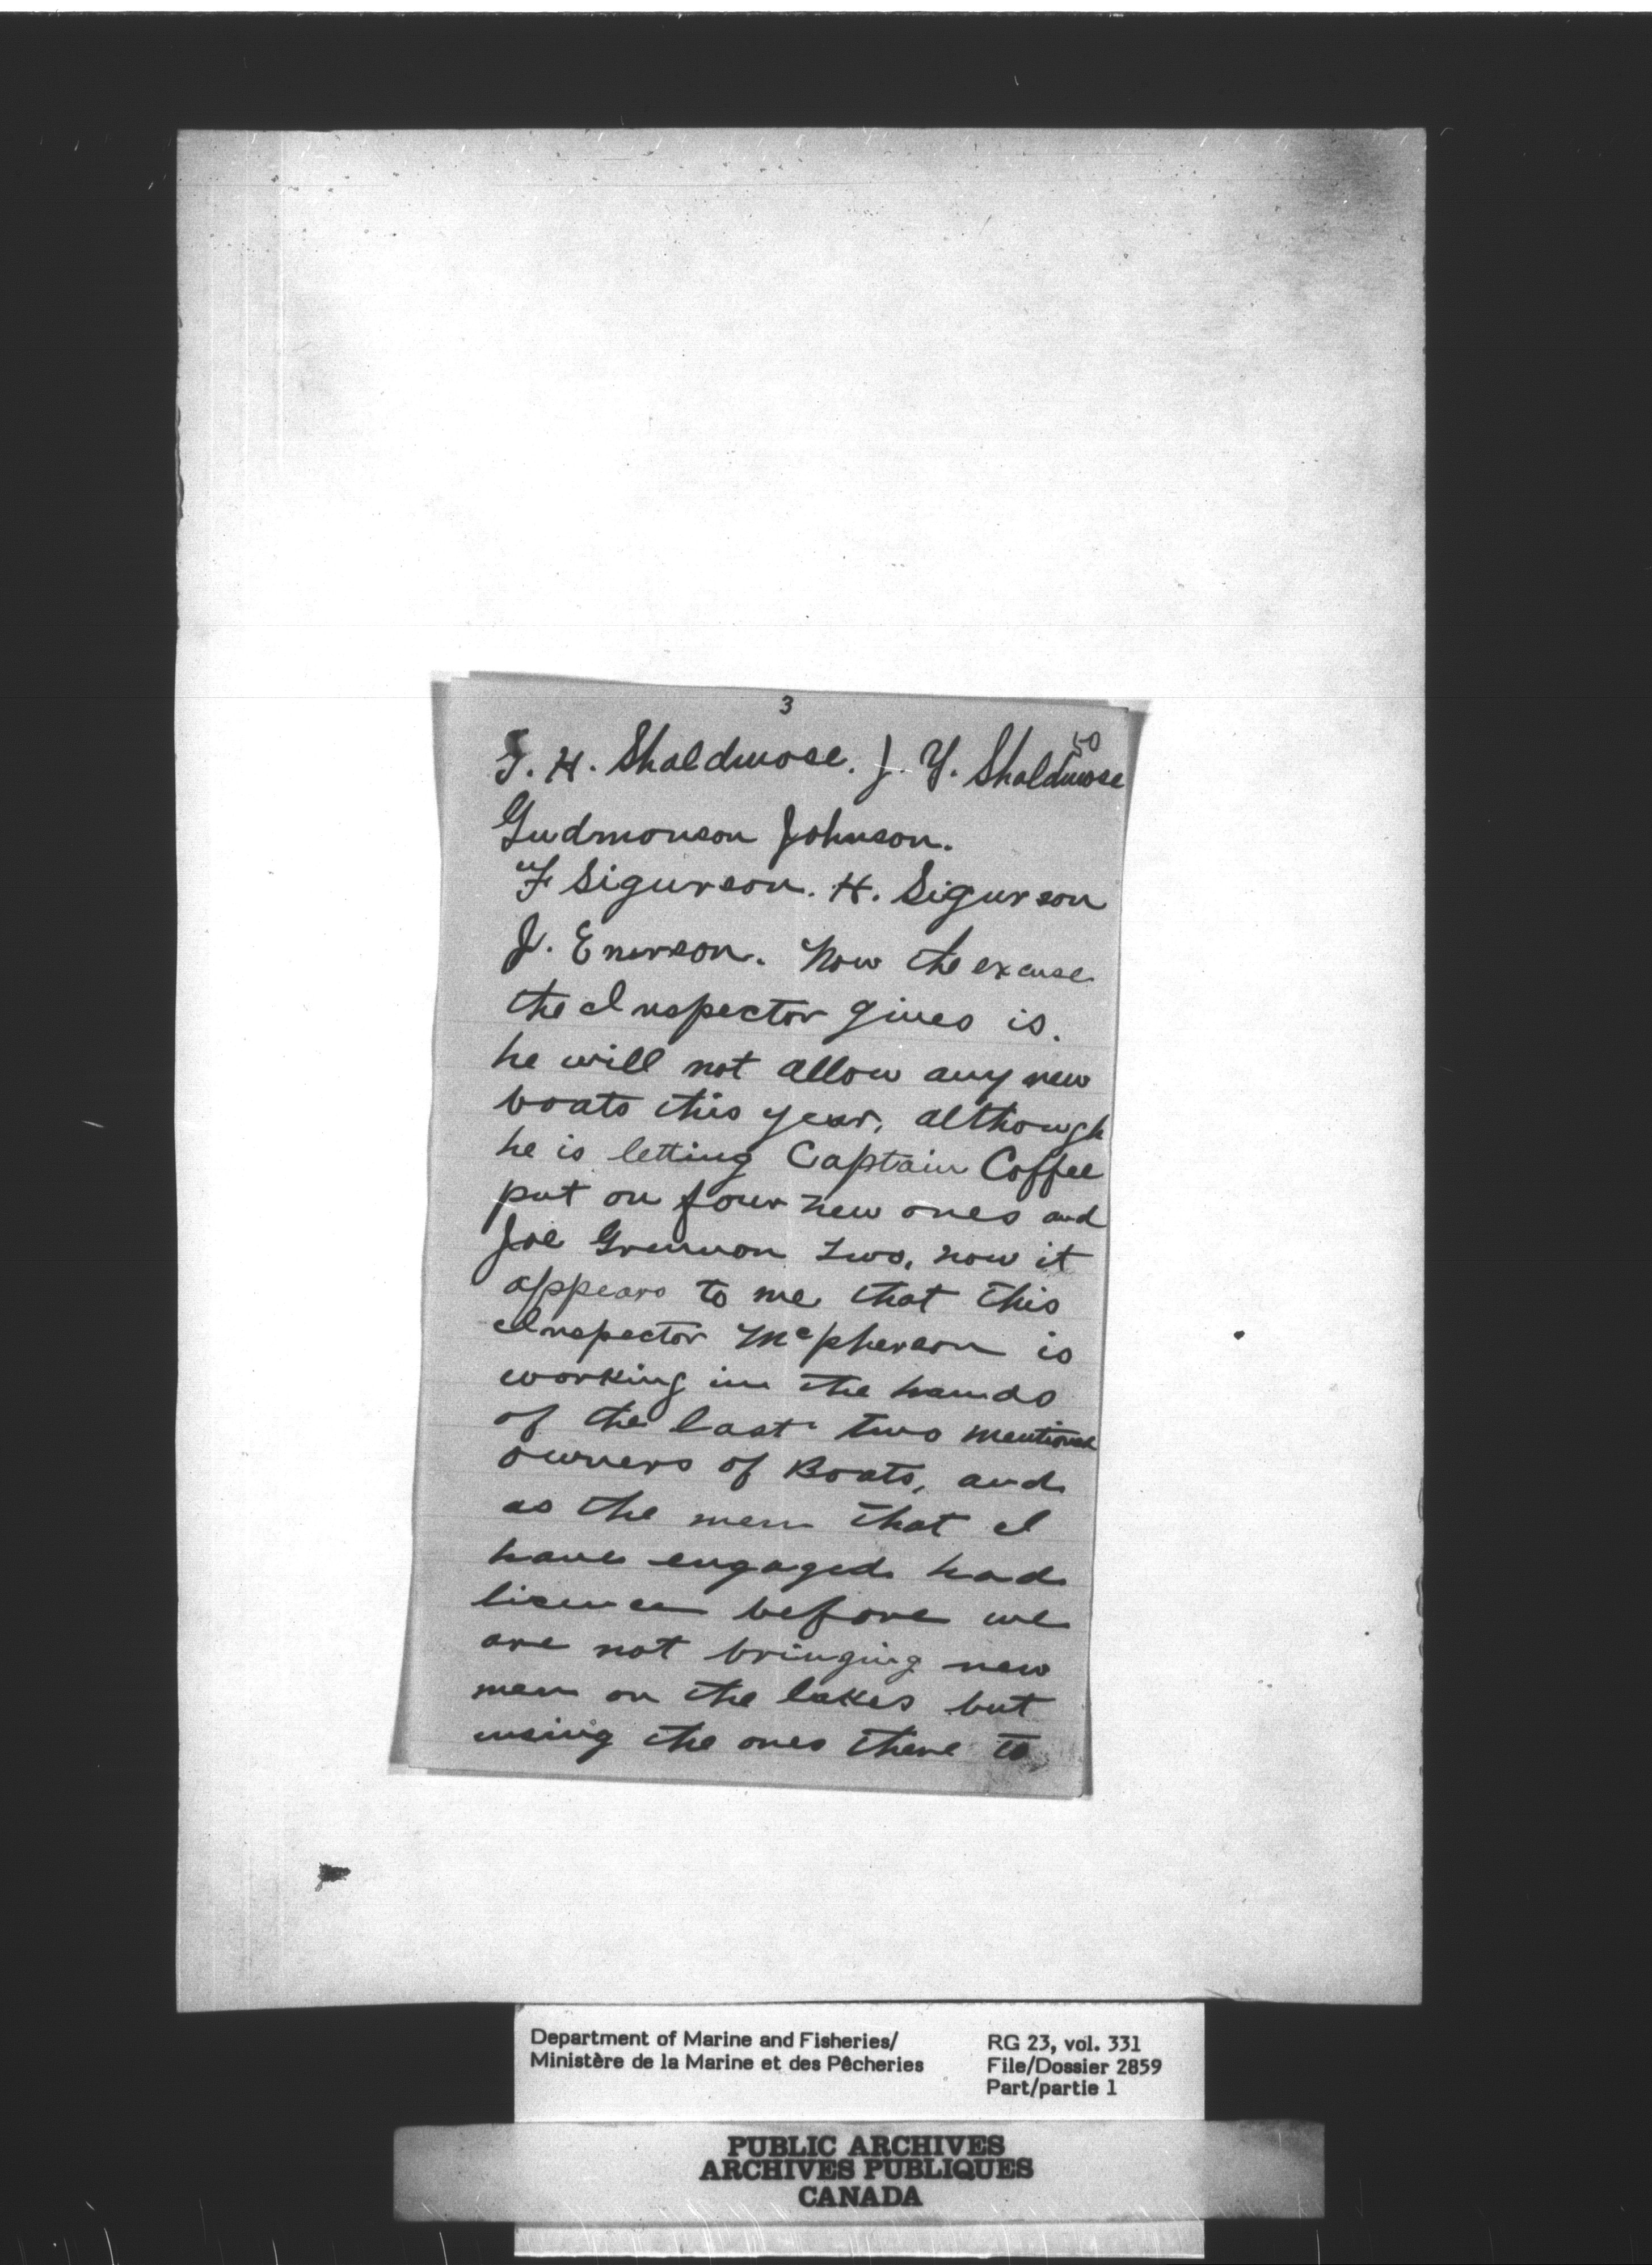 3
50
J. H. Skaldmose. J. Y. Skaldmose
Gudmonson Johnson.
F Sigurson. H. Sigurson
J. Enerson. Now the excuse
the Inspector gives is.
he will not allow any new
boats this year, although
he is letting Captain Coffee
put on four new ones and
Joe Grennon two, now it
appears to me that this
Inspector McPherson is
working in the hands
of the last two mentioned
owners of Boats, and
as the men that I
have engaged had
lisence before we
are not bringing new
men on the lakes but
using the ones there to
Department of Marine and Fisheries/
Ministère de la Marine et des Pêcheries
RG 23, vol. 331
File/Dossier 2859
Part/partie 1
PUBLIC ARCHIVES
ARCHIVES PUBLIQUES
CANADA